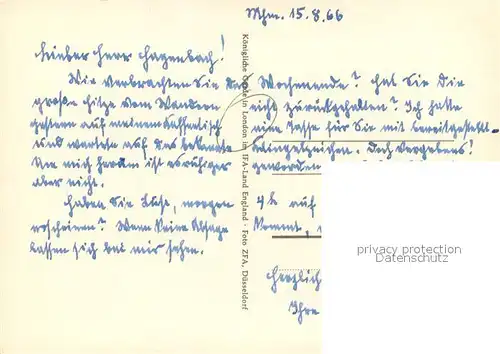 Mhm. 15.8.66
Lieber Herr Hagenbach!
Wie verbrachten Sie das Wochenende? Hat Sie die
große Hitze vom Wandern nicht zurückgehalten? Ich hatte
gestern auf meinem Kaffeetisch eine Tasse für Sie mit bereitgestellt
und wartete auf das bekannte Klingelzeichen. Doch vergebens!
Um mich herum ist es ruhiger geworden
aber nicht.
Haben Sie Lust, morgen 4 h auf
erscheinen? Wenn keine Absage kommt,
lassen sich bei mir sehen.
Herzlich
Ihre
Königliche Garde in London im IFA-Land England · Foto ZFA, Düsseldorf
privacy protection
Datenschutz